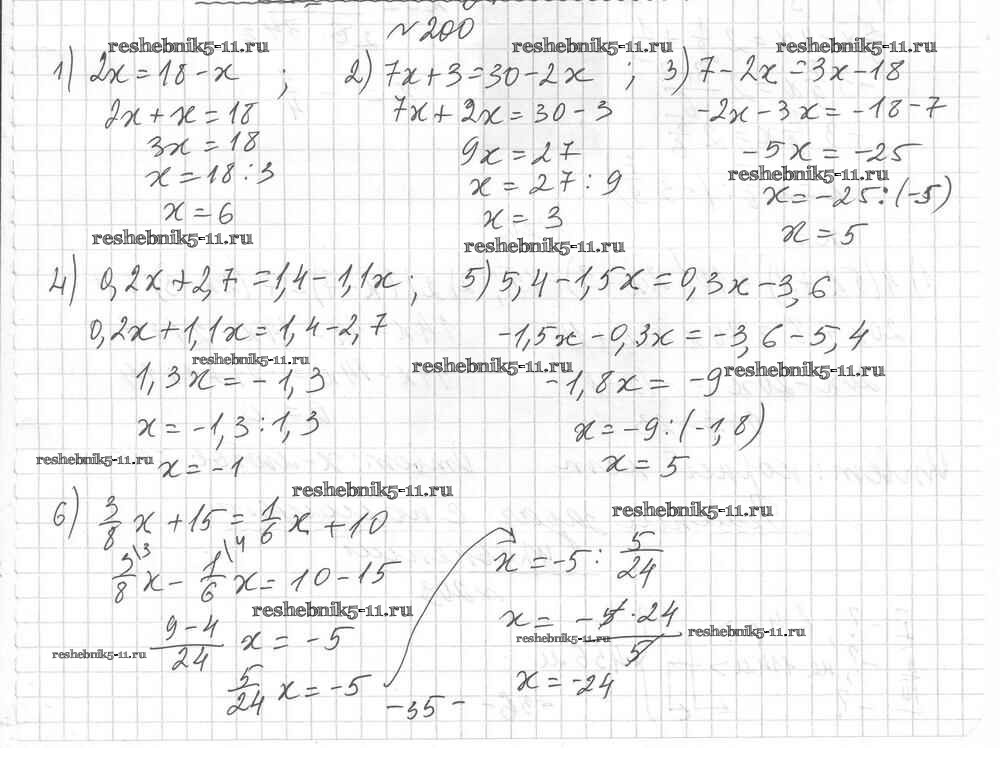 №200
reshebnik5-11.ru reshebnik5-11.ru reshebnik5-11.ru
1) 2x = 18 - x ; 2) 7x + 3 = 30 - 2x ; 3) 7 - 2x = 3x - 18
2x + x = 18 7x + 2x = 30 - 3 -2x - 3x = -18 - 7
3x = 18 9x = 27 -5x = -25
reshebnik5-11.ru
x = 18 : 3 x = 27 : 9 x = -25 : (-5)
x = 6 x = 3 x = 5
reshebnik5-11.ru reshebnik5-11.ru
4) 0,2x + 2,7 = 1,4 - 1,1x ; 5) 5,4 - 1,5x = 0,3x - 3,6
0,2x + 1,1x = 1,4 - 2,7 -1,5x - 0,3x = -3,6 - 5,4
reshebnik5-11.ru reshebnik5-11.ru reshebnik5-11.ru
1,3x = -1,3 -1,8x = -9
x = -1,3 : 1,3 x = -9 : (-1,8)
reshebnik5-11.ru
x = -1 x = 5
reshebnik5-11.ru reshebnik5-11.ru
6) 3/8 x + 15 = 1/6 x + 10
3\3/8 x - 1\4/6 x = 10 - 15
reshebnik5-11.ru
9-4/24 x = -5
reshebnik5-11.ru
5/24 x = -5
x = -5 : 5/24
x = -5·24/5
reshebnik5-11.ru reshebnik5-11.ru
x = -24
-35-